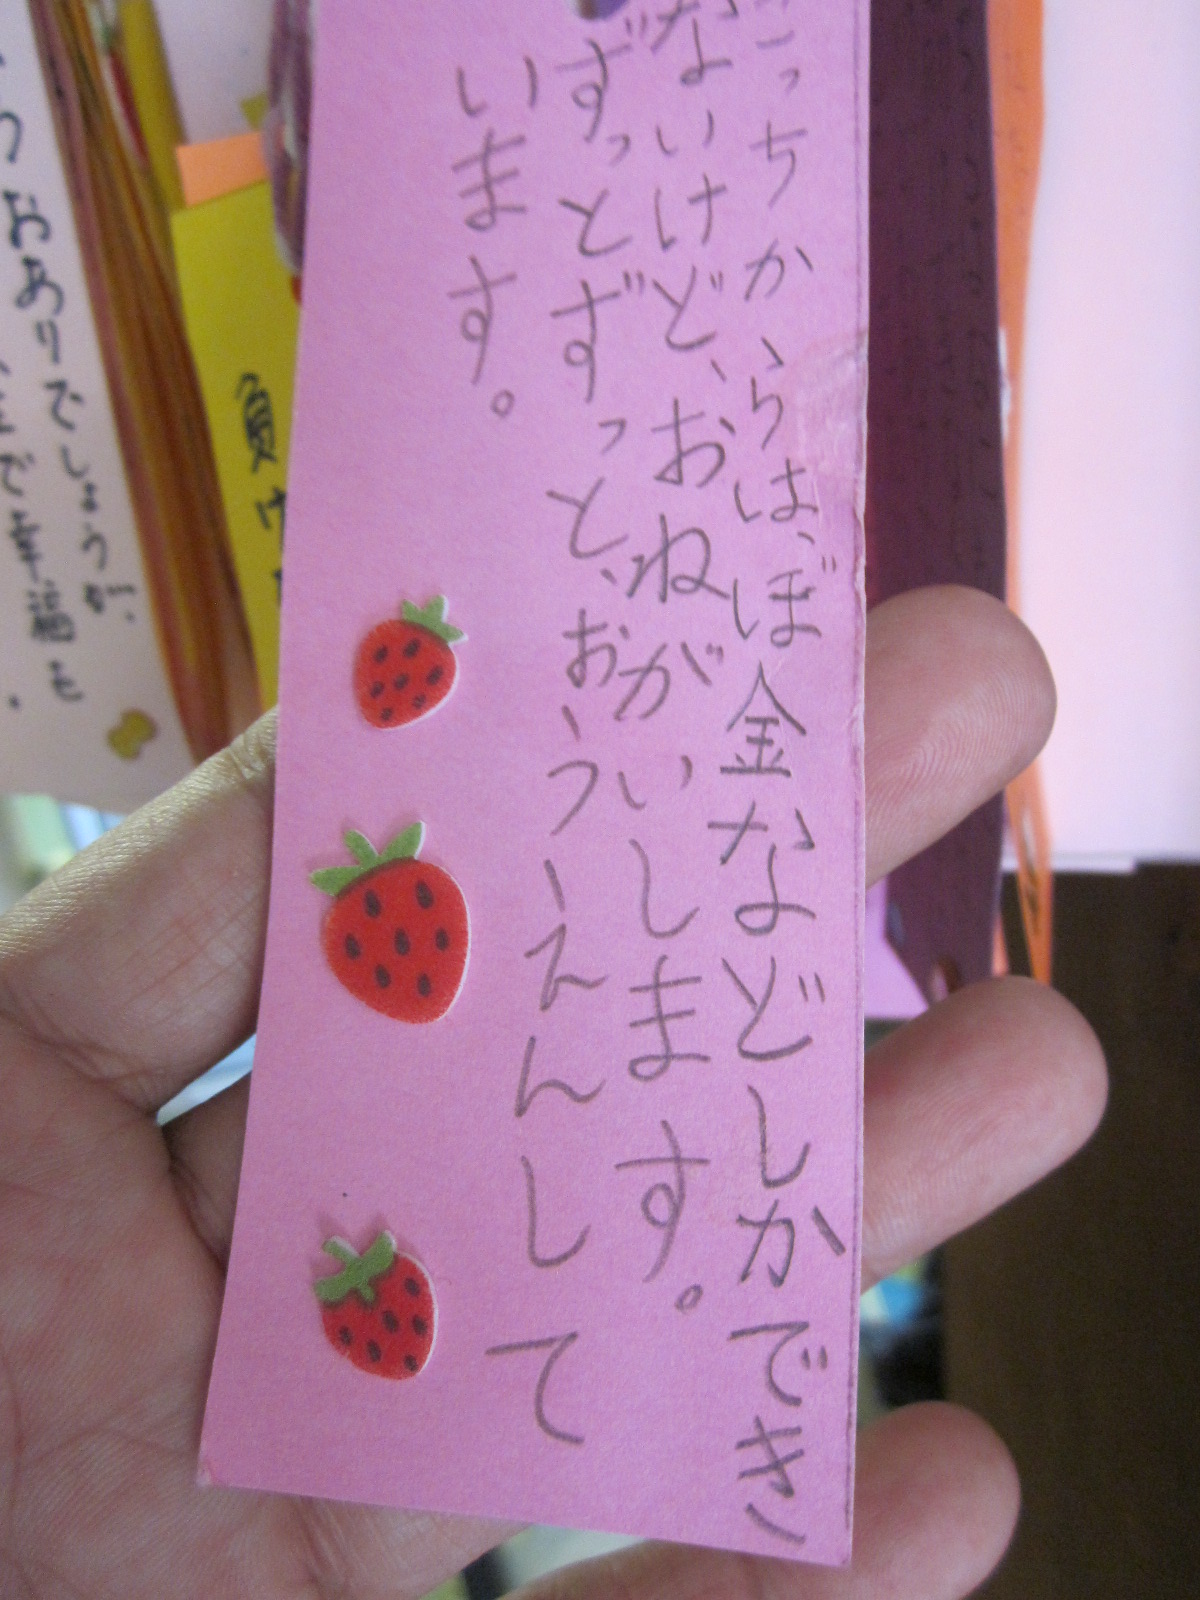 こっちからは、ぼ金などしかでき
ないけど、おねがいします。
ずっとずっと、おうえんして
います。
負け
おありでしょうが、
で幸福を